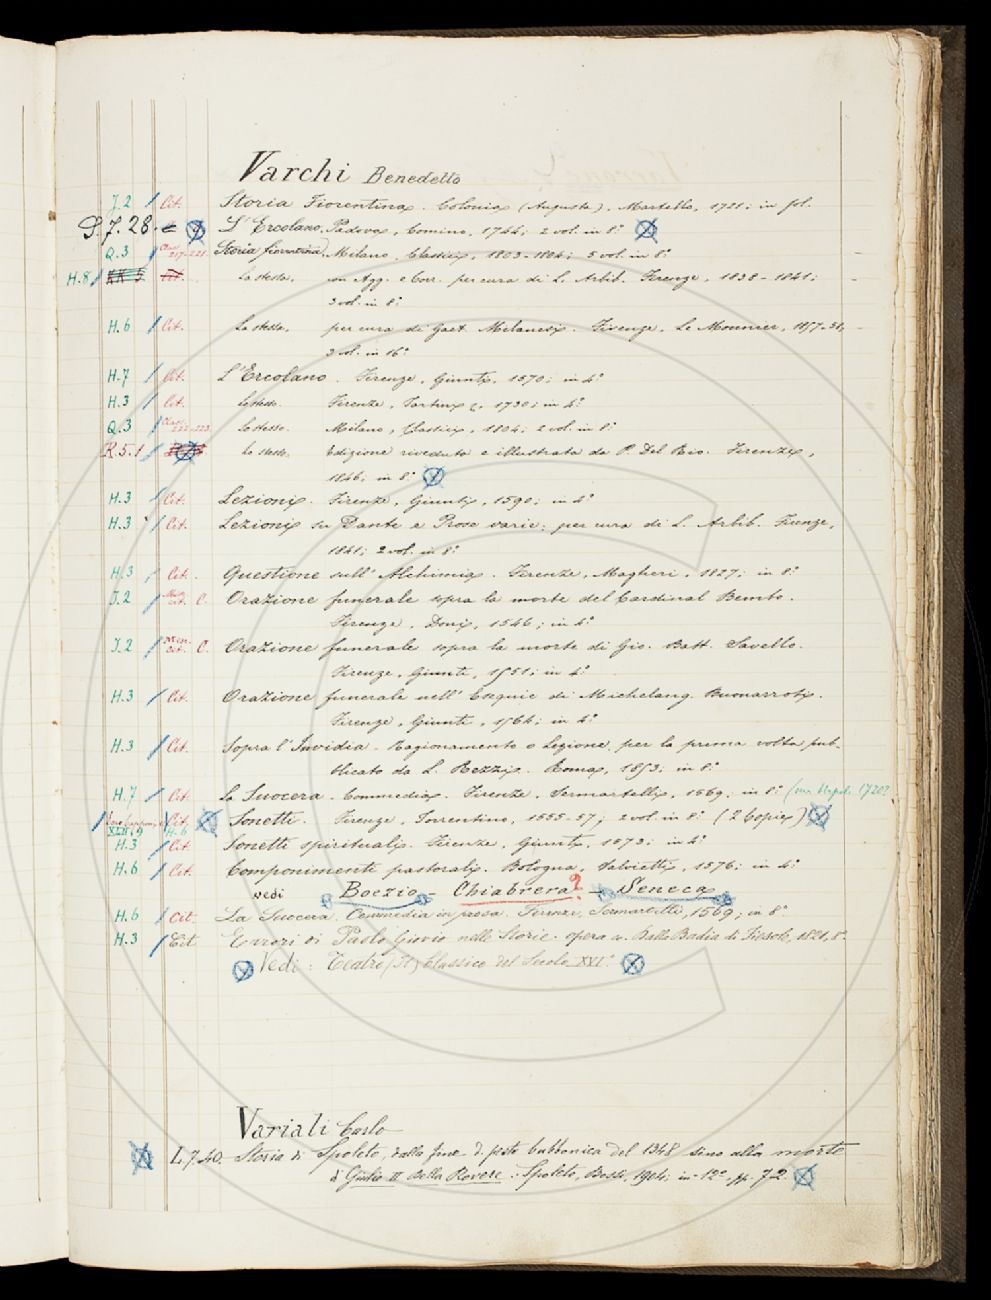 Varchi Benedetto
J.2 / Cit. Storia Fiorentina. Colonia (Augusta), Martello, 1721; in fol.
S.7.28. L'Ercolano. Padova, Comino, 1744; 2 vol. in 8.°
Q.3 / Clas. 217-221 Storia fiorentina. Milano, Classici, 1803-1804; 5 vol. in 8.°
H.8 / KK 5 Cit. La stessa, con Agg. e Corr. per cura di L. Arbib. Firenze, 1838-1841;
3 vol. in 8.°
H.6 / Cit. La stessa, per cura di Gaet. Milanesi. Firenze, Le Monnier, 1857-58,
3 vol. in 16.°
H.7 / Cit. L'Ercolano. Firenze, Giunti, 1570; in 4.°
H.3 / Cit. Lo stesso. Firenze, Tartini, 1730; in 4.°
Q.3 / Clas. 222-223 Lo stesso. Milano, Classici, 1804; 2 vol. in 8.°
R.5.1 / Lo stesso. Edizione riveduta e illustrata da P. Dal Rio. Firenze,
1846, in 8.°
H.3 / Cit. Lezioni. Firenze, Giunti, 1590; in 4.°
H.3 / Cit. Lezioni su Dante e Prose varie; per cura di L. Arbib. Firenze,
1841; 2 vol. in 8.°
H.3 / Cit. Questione sull' Alchimia. Firenze, Magheri, 1827; in 8.°
J.2 / Misc. cit. C. Orazione funerale sopra la morte del Cardinal Bembo.
Firenze, Doni, 1546; in 4.°
J.2 / Misc. cit. C. Orazione funerale sopra la morte di Gio. Batt. Savello.
Firenze, Giunti, 1551; in 4.°
H.3 / Cit. Orazione funerale nell' Esequie di Michelang. Buonarroti.
Firenze, Giunti, 1564; in 4.°
H.3 / Cit. Sopra l'Invidia. Ragionamento o Lezione per la prima volta pub-
blicato da L. Rezzi. Roma, 1853; in 8.°
H.7 / Cit. La Suocera. Commedia. Firenze, Sermartelli, 1569; in 8.°
XLII.9 / Cit. H.6 Sonetti. Firenze, Torrentino, 1555-57; 2 vol. in 8.° (2 Copie)
H.3 / Cit. Sonetti spirituali. Firenze, Giunti, 1573; in 4.°
H.6 / Cit. Componimenti pastorali. Bologna, Salvietti, 1576; in 4.°
vedi Boezio - Chiabrera? - Seneca
H.6 / Cit. La Suocera. Commedia in prosa. Firenze, Sermartelli, 1569; in 8.°
H.3 / Cit. Errori di Paolo Giovio nelle Storie. Badia di Fiesole, 1821, 8.°
Vedi: Teatro (Il) Classico del Secolo XVI.°
Variali Carlo
L.7.40. Storia di Spoleto, dalla fine d. peste bubbonica del 1348 sino alla morte
di Giulio II della Rovere. Spoleto, 1904; in-12.°, pp. 72.